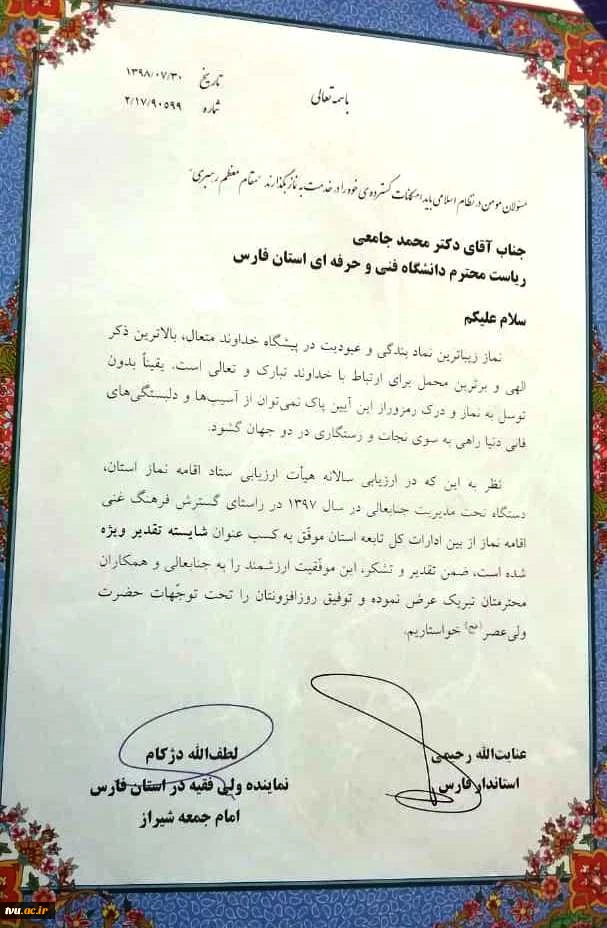 باسمه تعالی
تاریخ ۱۳۹۸/۰۷/۳۰
شماره ۲/۱۷/۹۰۵۹۹
مسئولان مومن در نظام اسلامی باید امکانات گسترده‌ی خود را در خدمت به نماز بگذارند "مقام معظم رهبری"
جناب آقای دکتر محمد جامعی
ریاست محترم دانشگاه فنی و حرفه ای استان فارس
سلام علیکم
نماز زیباترین نماد بندگی و عبودیت در پیشگاه خداوند متعال، بالاترین ذکر
الهی و برترین محمل برای ارتباط با خداوند تبارک و تعالی است. یقیناً بدون
توسل به نماز و درک رمزوراز این آیین پاک نمی‌توان از آسیب‌ها و دلبستگی‌های
فانی دنیا راهی به سوی نجات و رستگاری در دو جهان گشود.
نظر به این که در ارزیابی سالانه هیأت ارزیابی ستاد اقامه نماز استان،
دستگاه تحت مدیریت جنابعالی در سال ۱۳۹۷ در راستای گسترش فرهنگ غنی
اقامه نماز از بین ادارات کل تابعه استان موفّق به کسب عنوان شایسته تقدیر ویژه
شده است، ضمن تقدیر و تشکر، این موفّقیت ارزشمند را به جنابعالی و همکاران
محترمتان تبریک عرض نموده و توفیق روزافزونتان را تحت توجّهات حضرت
ولی‌عصر(عج) خواستاریم.
عنایت‌الله رحیمی
استاندار فارس
لطف‌الله دژکام
نماینده ولی فقیه در استان فارس
امام جمعه شیراز
tvu.ac.ir